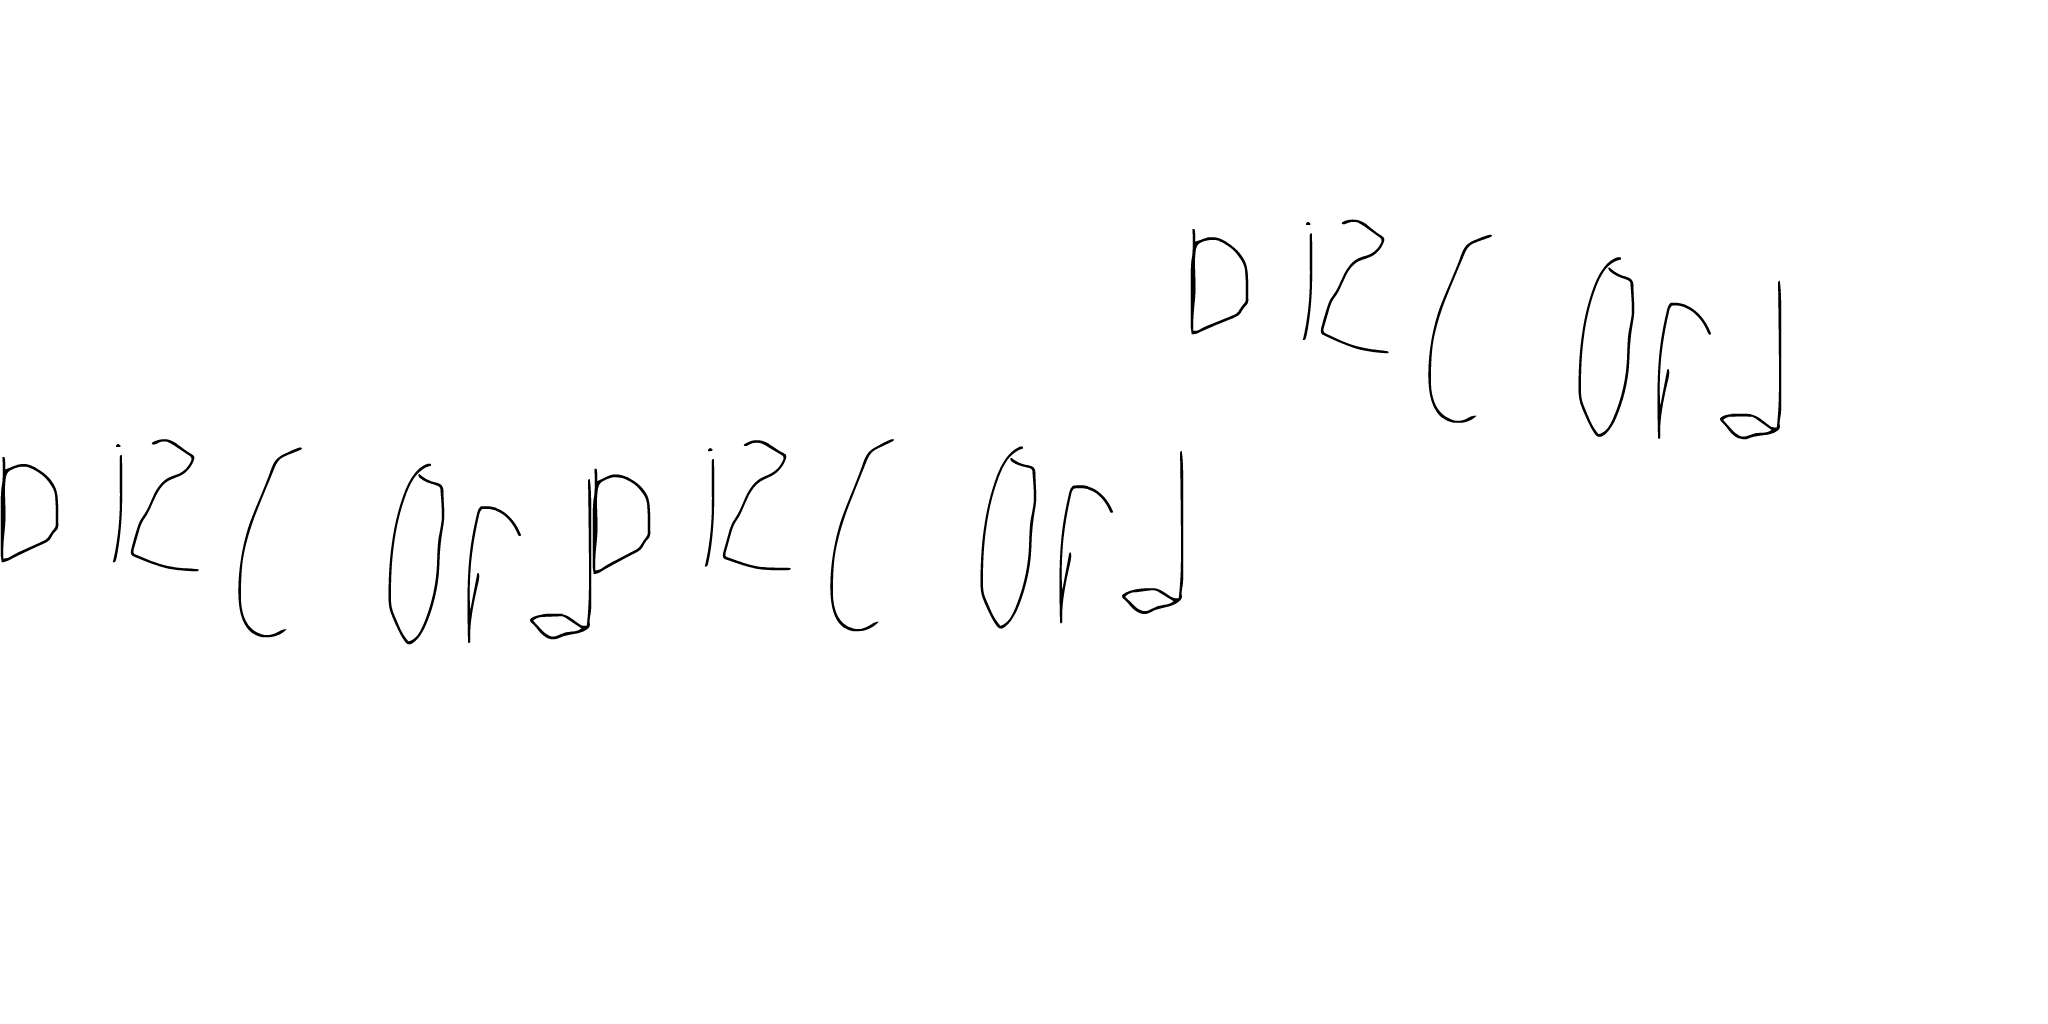 Dizcord
Dizcord Dizcord